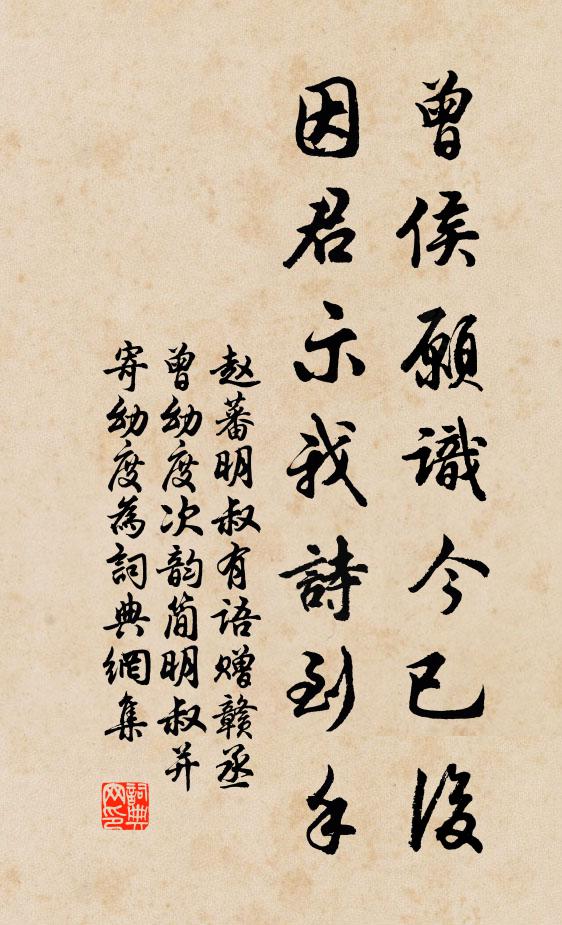 曾侯願識今已後
因君示我詩到手
赵蕃明叔有语赠赣丞
曾幼度次韵简明叔并
寄幼度為詞典網集
詞典
网印